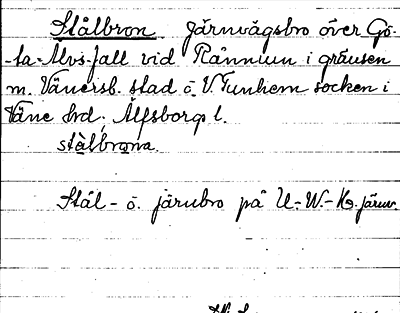 Stålbron Järnvägsbro över Gö-
-ta-Älvs-fall vid Rånnum i gränsen
m. Vänersb. stad o. V. Tunhem socken i
Väne hrd, Älfsborgs l.
stålbrona.
Stål- o. järnbro på U.-W.-H. järnv.